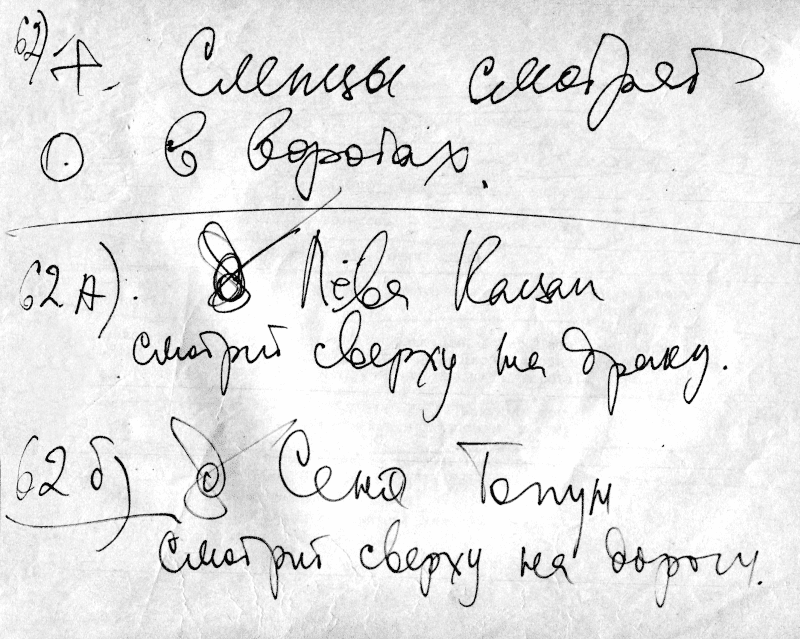 62) +. Слепцы смотрят
в воротах.
62А). Лёва Кацап
смотрит сверху на драку.
62б) Сеня Топун
смотрит сверху на дорогу.